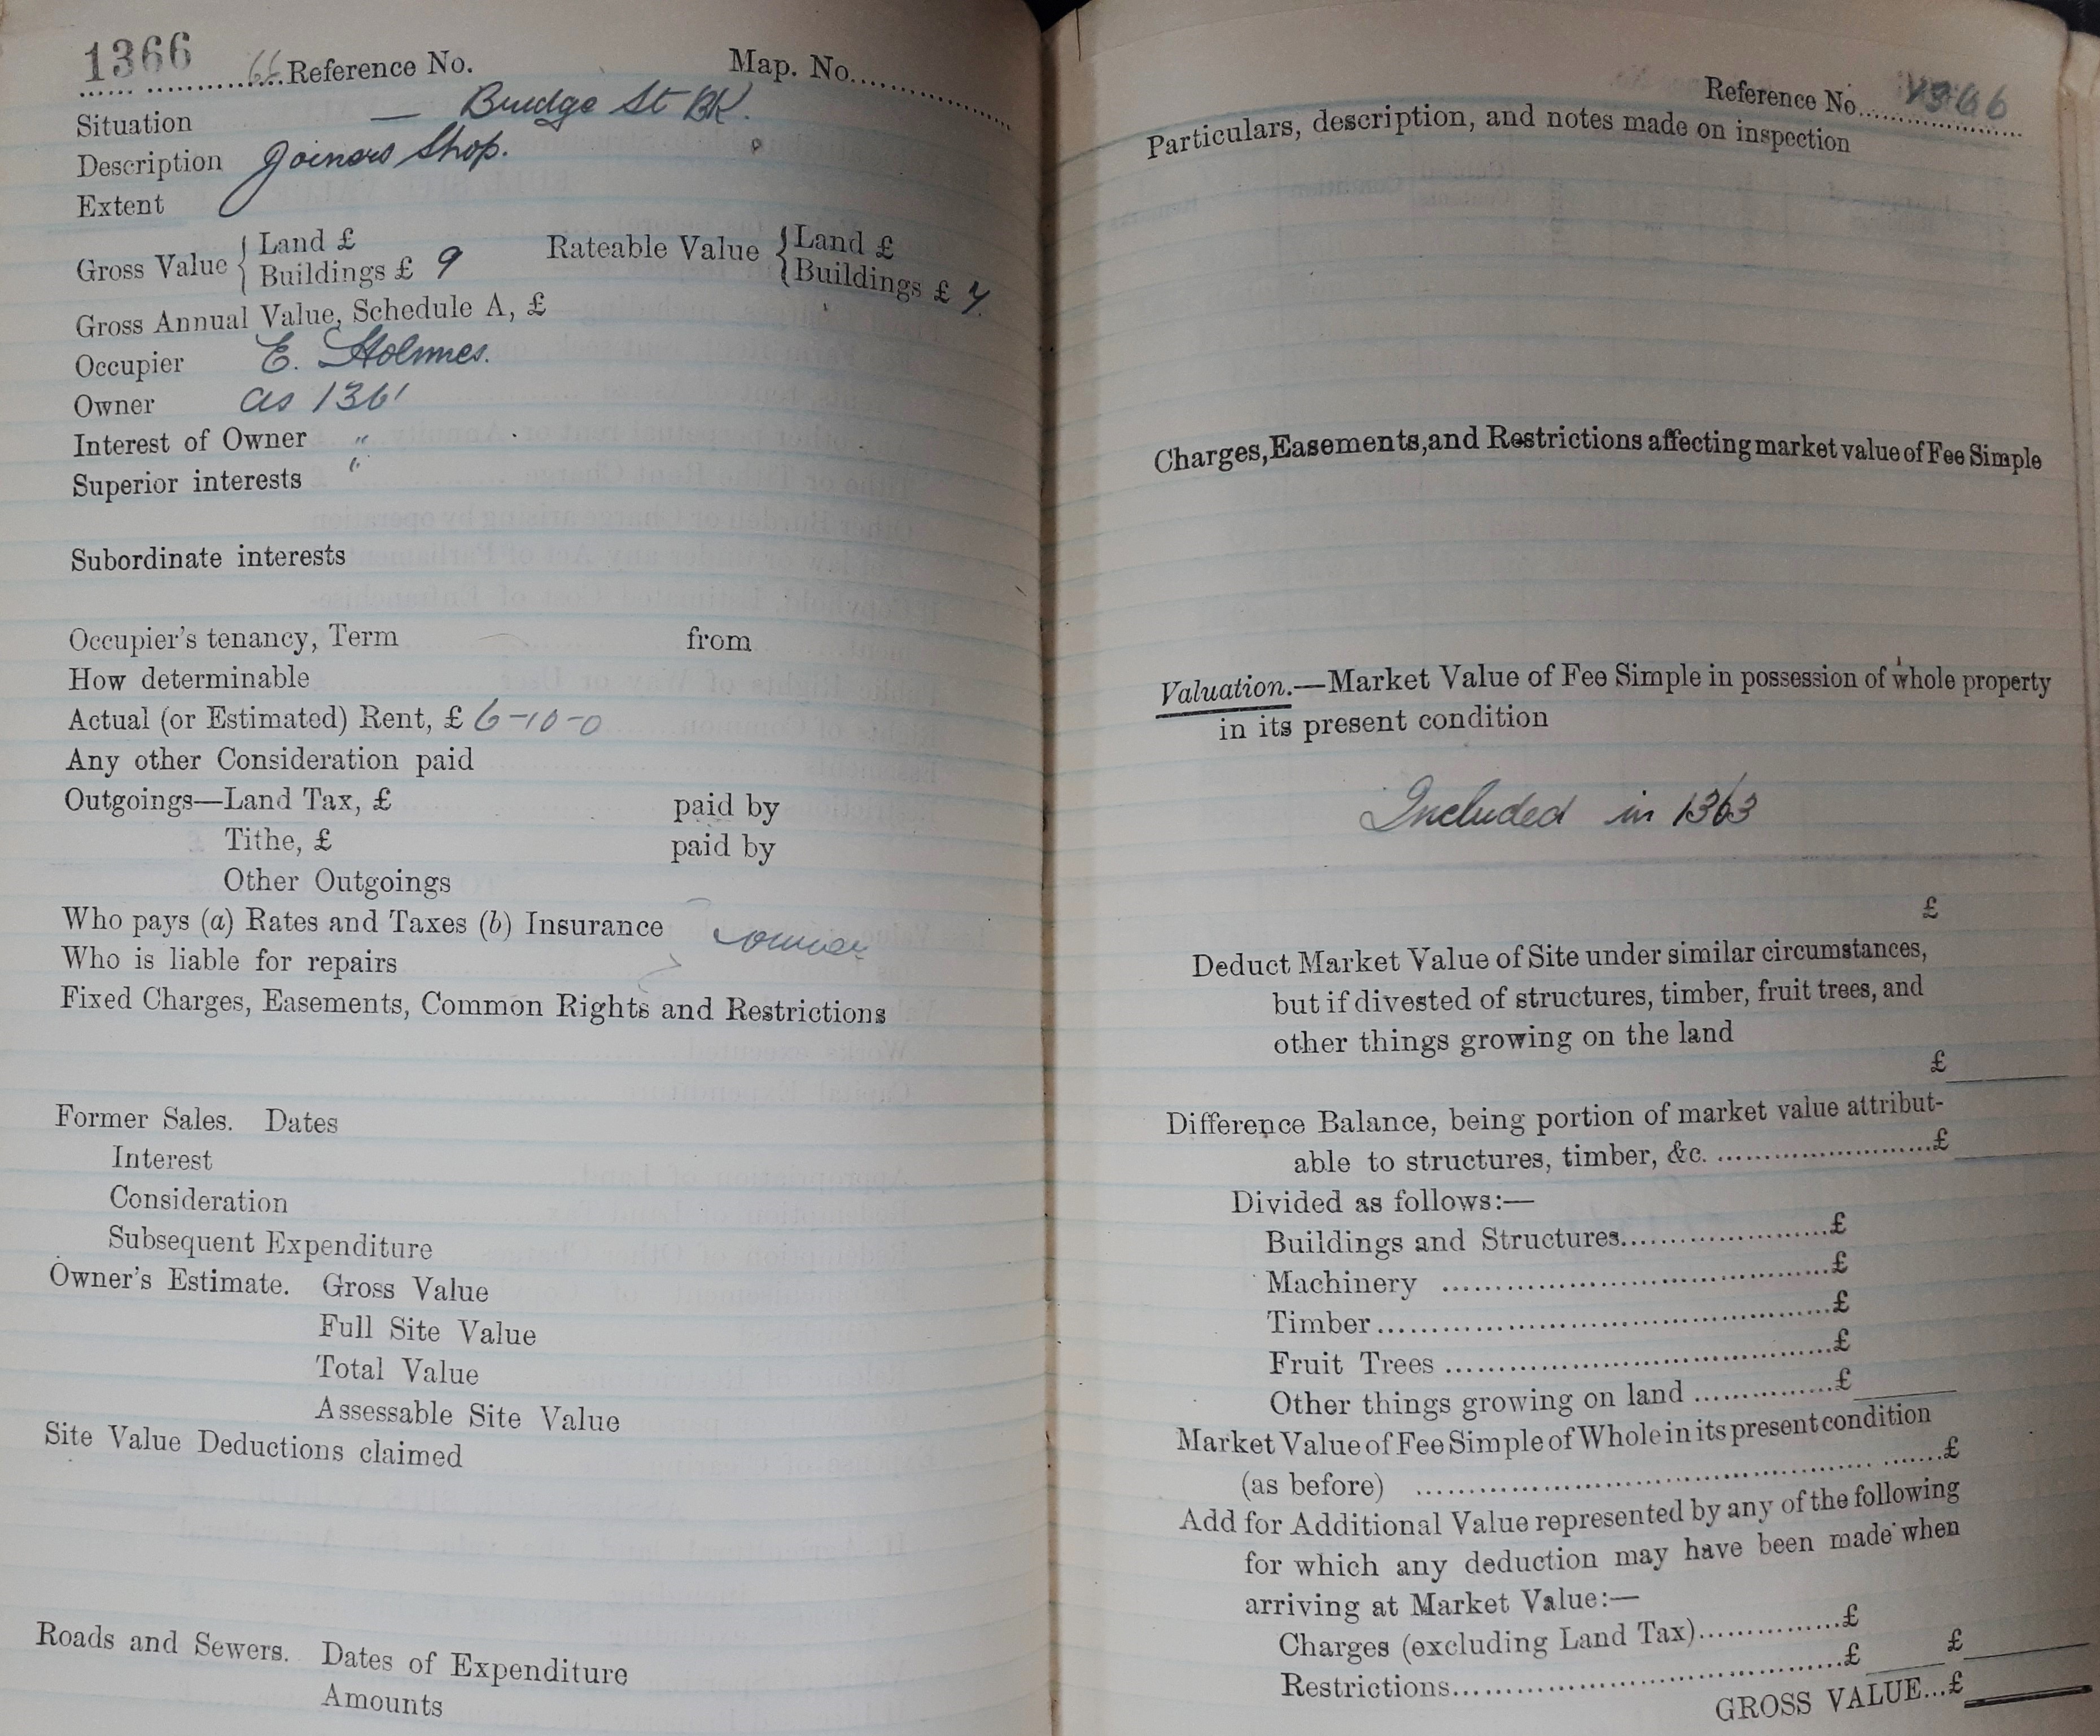 1366 66 Reference No. Map. No.
Situation — Bridge St BK.
Description Joiners Shop.
Extent
Gross Value { Land £ Rateable Value { Land £
Buildings £ 9 Buildings £ 7
Gross Annual Value, Schedule A, £
Occupier E. Holmes.
Owner as 1361
Interest of Owner "
Superior interests "
Subordinate interests
Occupier's tenancy, Term from
How determinable
Actual (or Estimated) Rent, £ 6-10-0
Any other Consideration paid
Outgoings—Land Tax, £ paid by
Tithe, £ paid by
Other Outgoings
Who pays (a) Rates and Taxes (b) Insurance owner
Who is liable for repairs
Fixed Charges, Easements, Common Rights and Restrictions
Former Sales. Dates
Interest
Consideration
Subsequent Expenditure
Owner's Estimate. Gross Value
Full Site Value
Total Value
Assessable Site Value
Site Value Deductions claimed
Roads and Sewers. Dates of Expenditure
Amounts
Reference No. 1366
Particulars, description, and notes made on inspection
Charges, Easements, and Restrictions affecting market value of Fee Simple
Valuation.—Market Value of Fee Simple in possession of whole property
in its present condition
Included in 1363
£
Deduct Market Value of Site under similar circumstances,
but if divested of structures, timber, fruit trees, and
other things growing on the land
£
Difference Balance, being portion of market value attribut-
able to structures, timber, &c. £
Divided as follows:—
Buildings and Structures £
Machinery £
Timber £
Fruit Trees £
Other things growing on land £
Market Value of Fee Simple of Whole in its present condition
(as before) £
Add for Additional Value represented by any of the following
for which any deduction may have been made when
arriving at Market Value:—
Charges (excluding Land Tax) £
Restrictions £ £
GROSS VALUE...£